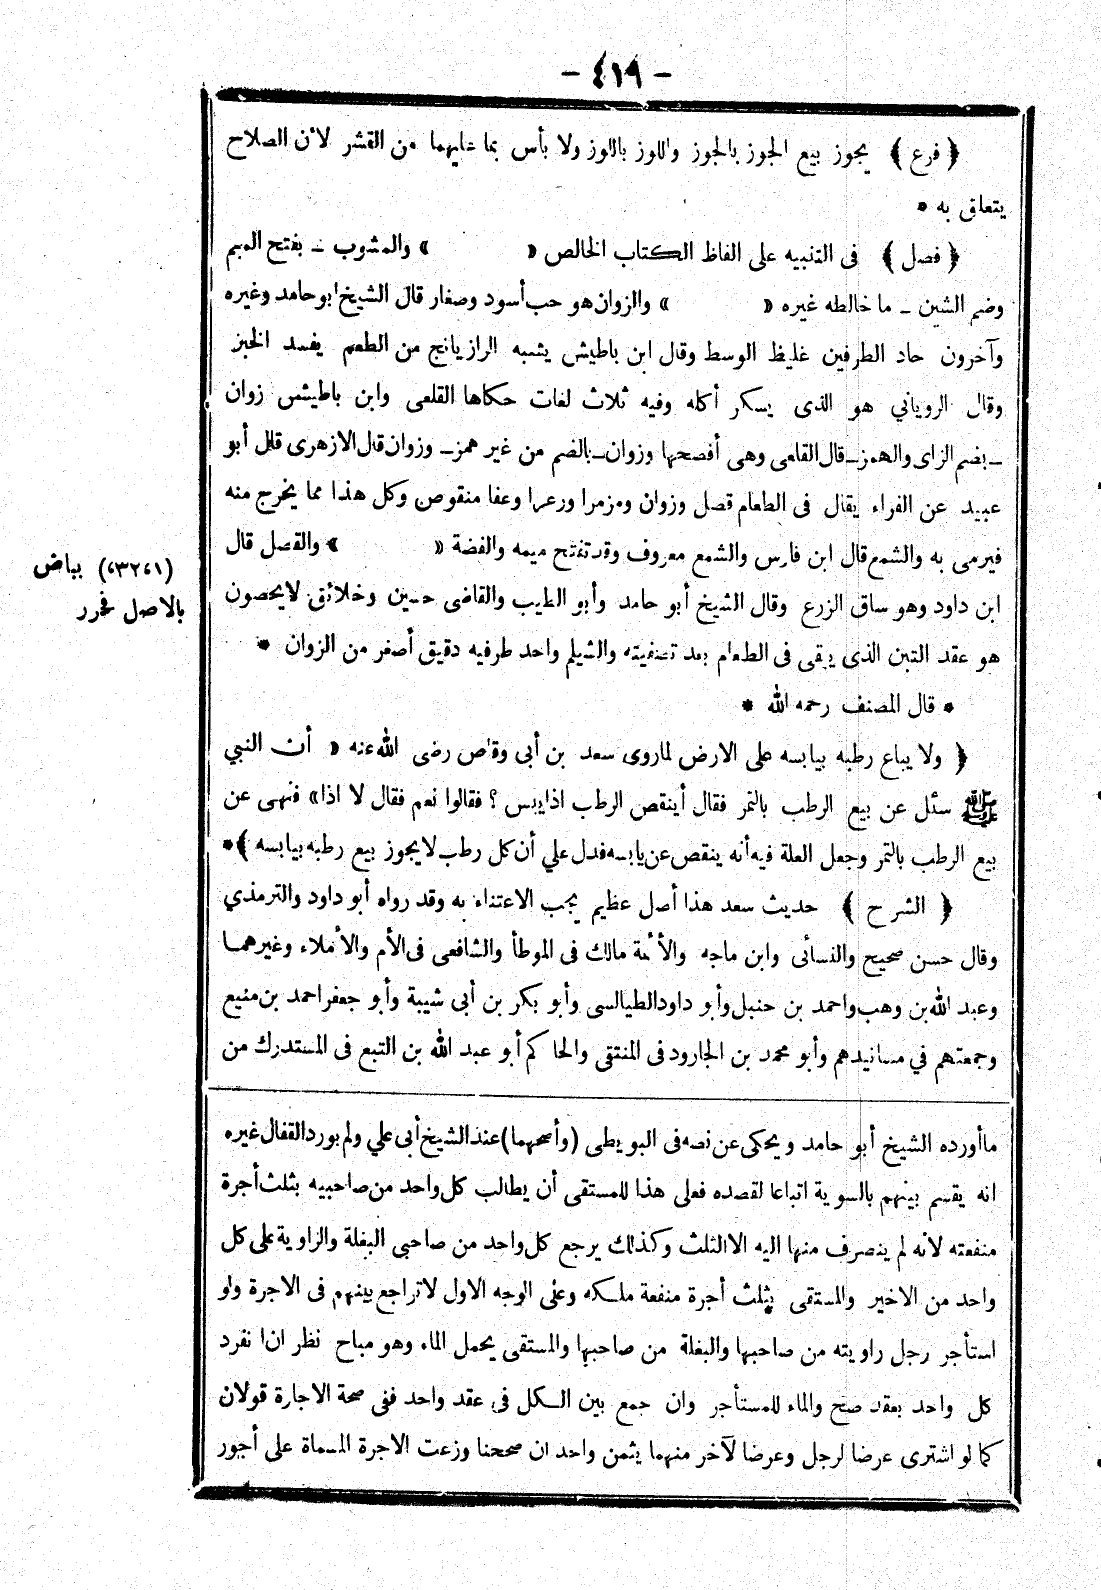 - ٤١٩ -
﴿ فرع ﴾ يجوز بيع الجوز بالجوز واللوز باللوز ولا بأس بما عليهما من القشر لأن الصلاح
يتعلق به *
﴿ فصل ﴾ فى التنبيه على الفاظ الكتاب الخالص « » والمشوب ـ بفتح الميم
وضم الشين ـ ما خالطه غيره « » والزوان هو حب أسود وصغار قال الشيخ ابو حامد وغيره
وآخرون حاد الطرفين غليظ الوسط وقال ابن باطيش يشبه الرازيانج من الطعم يفسد الخبز
وقال الرويانى هو الذى يسكر أكله وفيه ثلاث لغات حكاها القلعى وابن باطيش زوان
ـ بضم الزاى والهمز ـ قال القلعى وهى أفصحها وزوان ـ بالضم من غير همز ـ وزوان قال الازهرى قال أبو
عبيد عن الفراء يقال فى الطعام قصل وزوان ومزمرا ورعرا وعفا منقوص وكل هذا مما يخرج منه
فيرمى به والشمع قال ابن فارس والشمع معروف وقد تفتح ميمه والفضة « » والقصل قال
ابن داود وهو ساق الزرع وقال الشيخ أبو حامد وأبو الطيب والقاضى حسين وخلائق لا يحصون
هو عقد التبن الذى يبقى فى الطعام بعد تصفيته والشيلم واحد طرفيه دقيق أصغر من الزوان *
(١،٢،٣،) بياض
بالاصل فحرر
* قال المصنف رحمه الله *
﴿ ولا يباع رطبه بيابسه على الارض لما روى سعد بن أبى وقاص رضى الله عنه « أن النبي
ﷺ سئل عن بيع الرطب بالتمر فقال أينقص الرطب اذا يبس ؟ فقالوا نعم فقال لا اذا » فنهى عن
بيع الرطب بالتمر وجعل العلة فيه أنه ينقص عن يابسه فدل علي أن كل رطب لا يجوز بيع رطبه بيابسه ﴾ *
﴿ الشرح ﴾ حديث سعد هذا أصل عظيم يجب الاعتناء به وقد رواه أبو داود والترمذي
وقال حسن صحيح والنسائى وابن ماجه والأئمة مالك فى الموطأ والشافعى فى الأم والأملاء وغيرهما
وعبد الله بن وهب واحمد بن حنبل وأبو داود الطيالسى وأبو بكر بن أبى شيبة وأبو جعفر احمد بن منيع
وجمعتهم في مسانيدهم وأبو محمد بن الجارود فى المنتقى والحاكم أبو عبد الله بن التبع فى المستدرك من
ما أورده الشيخ أبو حامد ويحكى عن نصه فى البويطى (وأصحهما) عند الشيخ أبى علي ولم يورد القفال غيره
انه يقسم بينهم بالسوية اتباعا لقصده فعلى هذا للمستقى أن يطالب كل واحد من صاحبيه بثلث أجرة
منفعته لانه لم ينصرف منها اليه الا الثلث وكذلك يرجع كل واحد من صاحبى البغلة والراوية على كل
واحد من الاخير والمستقى بثلث أجرة منفعة ملكه وعلى الوجه الاول لا تراجع بينهم فى الاجرة ولو
استأجر رجل راويته من صاحبها والبغلة من صاحبها والمستقى يحمل الماء وهو مباح نظر ان انفرد
كل واحد بعقد صح والماء للمستأجر وان جمع بين الكل فى عقد واحد ففى صحة الاجارة قولان
كما لو اشترى عرضا لرجل وعرضا لآخر منهما بثمن واحد ان صححنا وزعت الاجرة المسماة على أجور